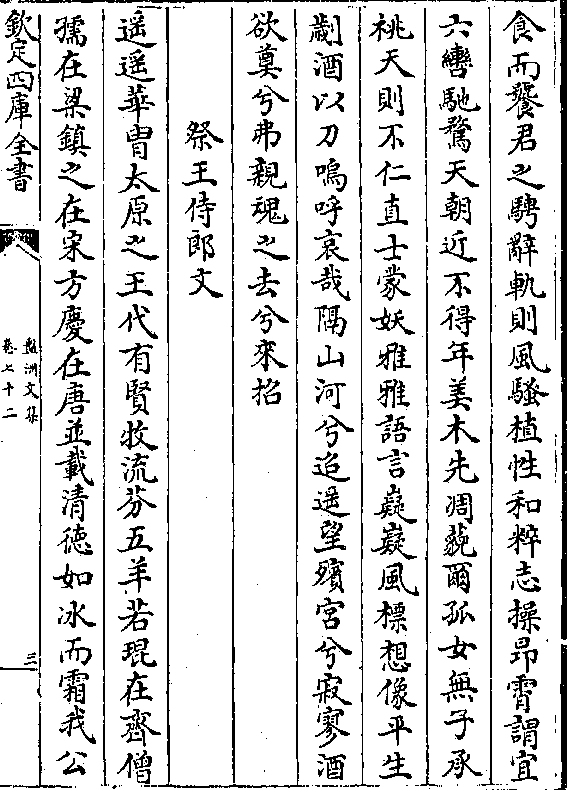 食而饗君之騁辭軌則風騷植性和粹志操昻霄謂宜
六轡馳騖天朝近不得年美木先凋藐爾孤女無子承
祧天則不仁直士蒙妖雅雅語言嶷嶷風標想像平生
酒以刀嗚呼哀哉隔山河兮迢遥望殯宮兮寂寥酒
欲奠兮弗親魂之去兮來招
祭王侍郎文
遥遥華胄太原之王代有賢牧流芬五羊若琨在齊僧
孺在梁鎮之在宋方慶在唐並載清徳如冰而霜我公
欽定四庫全書
盤洲文集
卷七十二
三